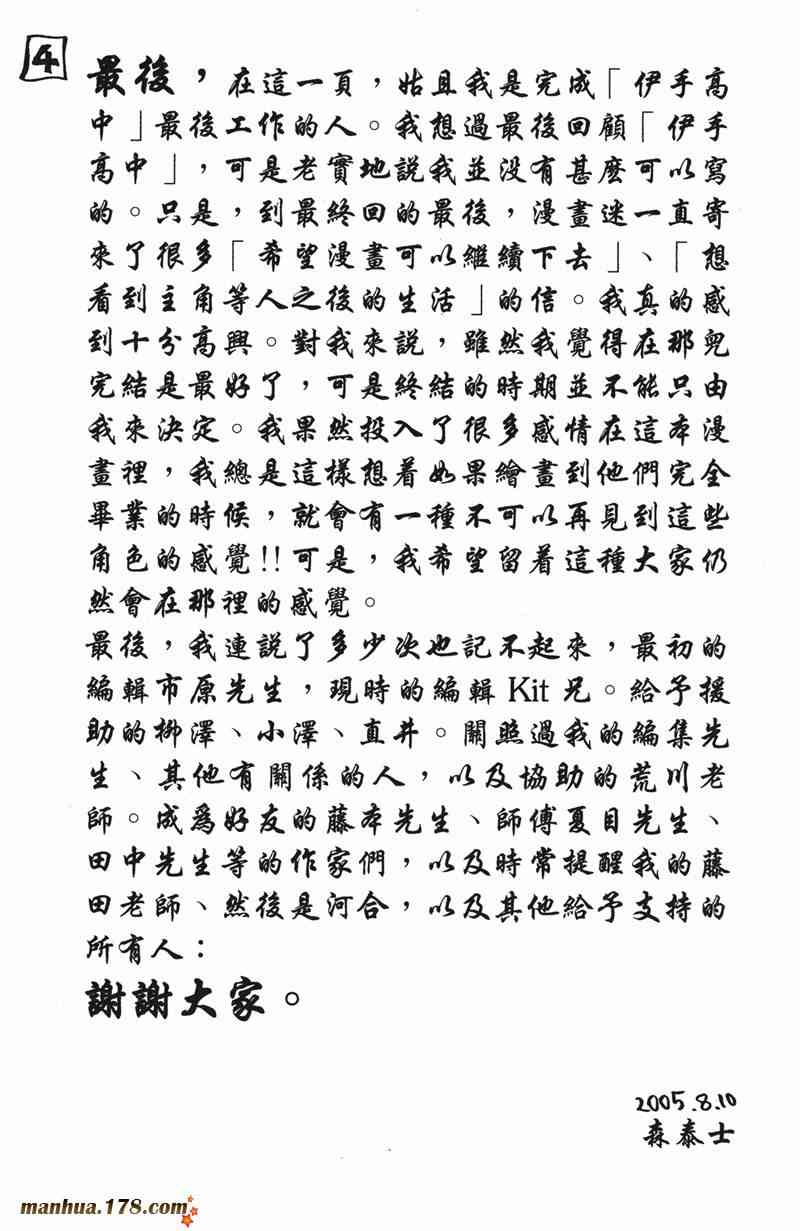 4
最後，在這一頁，姑且我是完成「伊手高
中」最後工作的人。我想過最後回顧「伊手
高中」，可是老實地說我並没有甚麽可以寫
的。只是，到最終回的最後，漫畫迷一直寄
來了很多「希望漫畫可以繼續下去」、「想
看到主角等人之後的生活」的信。我真的感
到十分高興。對我來說，雖然我覺得在那兒
完結是最好了，可是終結的時期並不能只由
我來決定。我果然投入了很多感情在這本漫
畫裡，我總是這樣想着如果繪畫到他們完全
畢業的時候，就會有一種不可以再見到這些
角色的感覺!!可是，我希望留着這種大家仍
然會在那裡的感覺。
最後，我連説了多少次也記不起來，最初的
編輯市原先生，現時的編輯Kit兄。給予援
助的柳澤、小澤、直井。關照過我的編集先
生、其他有關係的人，以及協助的荒川老
師。成爲好友的藤本先生、師傅夏目先生、
田中先生等的作家們，以及時常提醒我的藤
田老師、然後是河合，以及其他給予支持的
所有人：
謝謝大家。
2005.8.10
森泰士
manhua.178.com